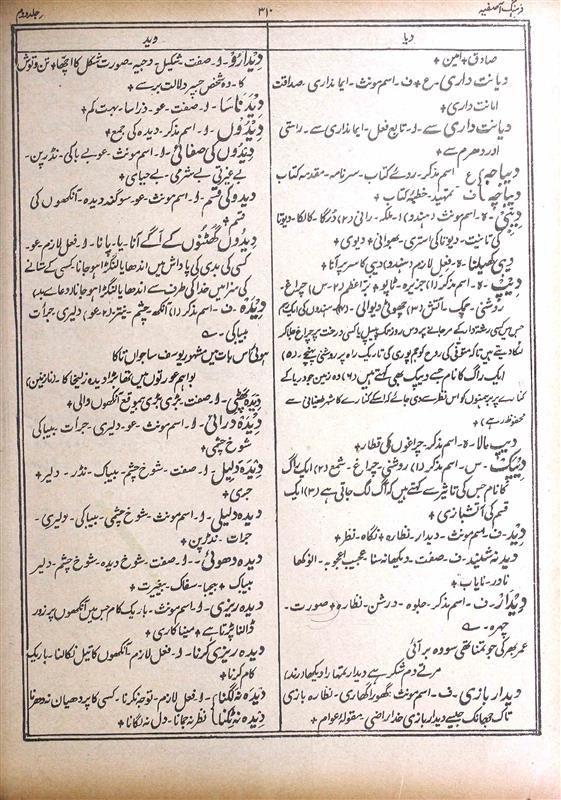 فرہنگِ آصفیہ ۳۱۰ جلد دوم
دیا
صادق + امین +
دیانت داری - ع + ف - اسم مونث - ایمانداری - صداقت
امانت داری +
دیانت داری سے - ا - تابع فعل - ایمانداری سے - راستی
اور دھرم سے +
دیباجہ - ع اسم مذکر - روئے کتاب - سرنامہ - مقدمہ کتاب
دیباچہ - ف تمہید - خطبۂ کتاب +
دیبی - ہ - اسم مونث (ہندو) ۱ - ملکہ - رانی (۲) دُرگا - کالکا - دیوتا
کی تانیث - دیوتا کی استری - بھوانی + دیوی +
دیبی کھیلنا - ہ - فعل لازم (ہندو) دیبی کا سر پر آنا +
دیپ - ہ - اسم مذکر (۱) جزیرہ - ٹاپو + بر اعظم (۲ - س) چراغ -
روشنی - چمک - آتش (۳) چھوٹی دیوالی - (۴) ہندوؤں کی ایک رسم
جس میں کسی رشتہ دار کے مر جانے پر دس روز تک پیپل یا کسی درخت پر چراغ جلا کر
لٹکا دیتے ہیں تاکہ متوفی کی روح کو جم پوری کی تاریک راہ پر روشنی پہنچے - (۵)
ایک راگ کا نام جسے دیپک بھی کہتے ہیں (۶) وہ زمین جو دریا کے
کنارے پر برہمنوں کو اس نظر سے دی جائے کہ اس کے کنارے کا شہر طغیانی سے
محفوظ رہے) +
دیپ مالا - ہ - اسم مذکر - چراغوں کی قطار +
دیپک - س - اسم مذکر (۱) روشنی - چراغ - شمع (۲) ایک راگ
کا نام جس کی تاثیر سے کہتے ہیں کہ آگ لگ جاتی ہے (۳) ایک
قسم کی آتشبازی +
دید - ف - اسم مونث - دیدار - نظارہ + نگاہ - نظر +
دید نہ شنید - ف - صفت - دیکھا نہ سنا - عجیب - اعجوبہ - انوکھا
نادر - نایاب +
دیدار - ف - اسم مذکر - جلوہ - درشن - نظارہ + صورت -
چہرہ - ے
عمر بھر کی جو تمنا تھی سو وہ بر آئی
مرتے دم شکر ہے دیدار تمہارا دیکھا (رند)
دیدار بازی - ف - اسم مونث - گھورا گھاری - نظارہ بازی
تاک جھانک جیسے دیدار بازی خدا راضی - مقولۂ عوام +
دید
دیدارُو - ا - صفت - شکیل - وجیہ - صورت شکل کا اچھا + تن و توش
کا - وہ شخص جسپر دلالت برسے +
دید ناسا - ا - صفت - عو - ذرا سا - بہت کم +
دیدوں - ا - اسم مذکر - دیدہ کی جمع +
دیدوں کی صفائی - ا - اسم مونث - عو - بے باکی - نڈر پن -
بے غیرتی - بے شرمی - بے حیائی +
دیدوں کی قسم - ا - اسم مونث - عو - سوگند دیدہ - آنکھوں کی
قسم +
دیدوں گھٹنوں کے آگے آنا - یا - پانا - ا - فعل لازم - عو -
کسی کی بدی کی پاداش میں اندھا یا لنگڑا ہو جانا - کسی کے ستانے
کی سزا میں خدا کی طرف سے اندھا یا لنگڑا ہو جانا (دعائے بد)
دیدہ - ف - اسم مذکر - (۱) آنکھ - چشم - نیتر (۲ عو) دلیری جرأت
بیباکی - ے
ہوئی اس بات میں مشہور یوسف سا جواں تاکا
بوا ہم عورتوں میں تھا بڑا دیدہ زلیخا کا - (نازنین)
دیدہ پھٹی - ا - صفت - بڑی بڑی بے موقع آنکھوں والی +
دیدہ درائی - ا - اسم مونث - عو - دلیری - جرأت - بیباکی
شوخ چشمی +
دیدہ دلیل - ا - صفت - شوخ چشم - بیباک - نڈر - دلیر +
جری +
دیدہ دلیلی - ا - اسم مونث - شوخ چشمی - بیباکی - دلیری -
جرأت - نڈر پن +
دیدہ دھوئی - ا - صفت - شوخ دیدہ - شوخ چشم - دلیر
بیباک + بیحیا - سفاک - بیغیرت +
دیدہ ریزی - ا - اسم مونث - باریک کام جس میں آنکھوں پر زور
ڈالنا پڑتا ہے + میناکاری +
دیدہ ریزی کرنا - ا - فعل لازم - آنکھوں کا تیل نکالنا - باریک
کام کرنا +
دیدہ نہ لگنا - ا - فعل لازم - توجہ نہ کرنا - کسی کام پر دھیان نہ دھرنا
دیدہ نہ ٹکنا نظر نہ جمانا - دل نہ لگانا +